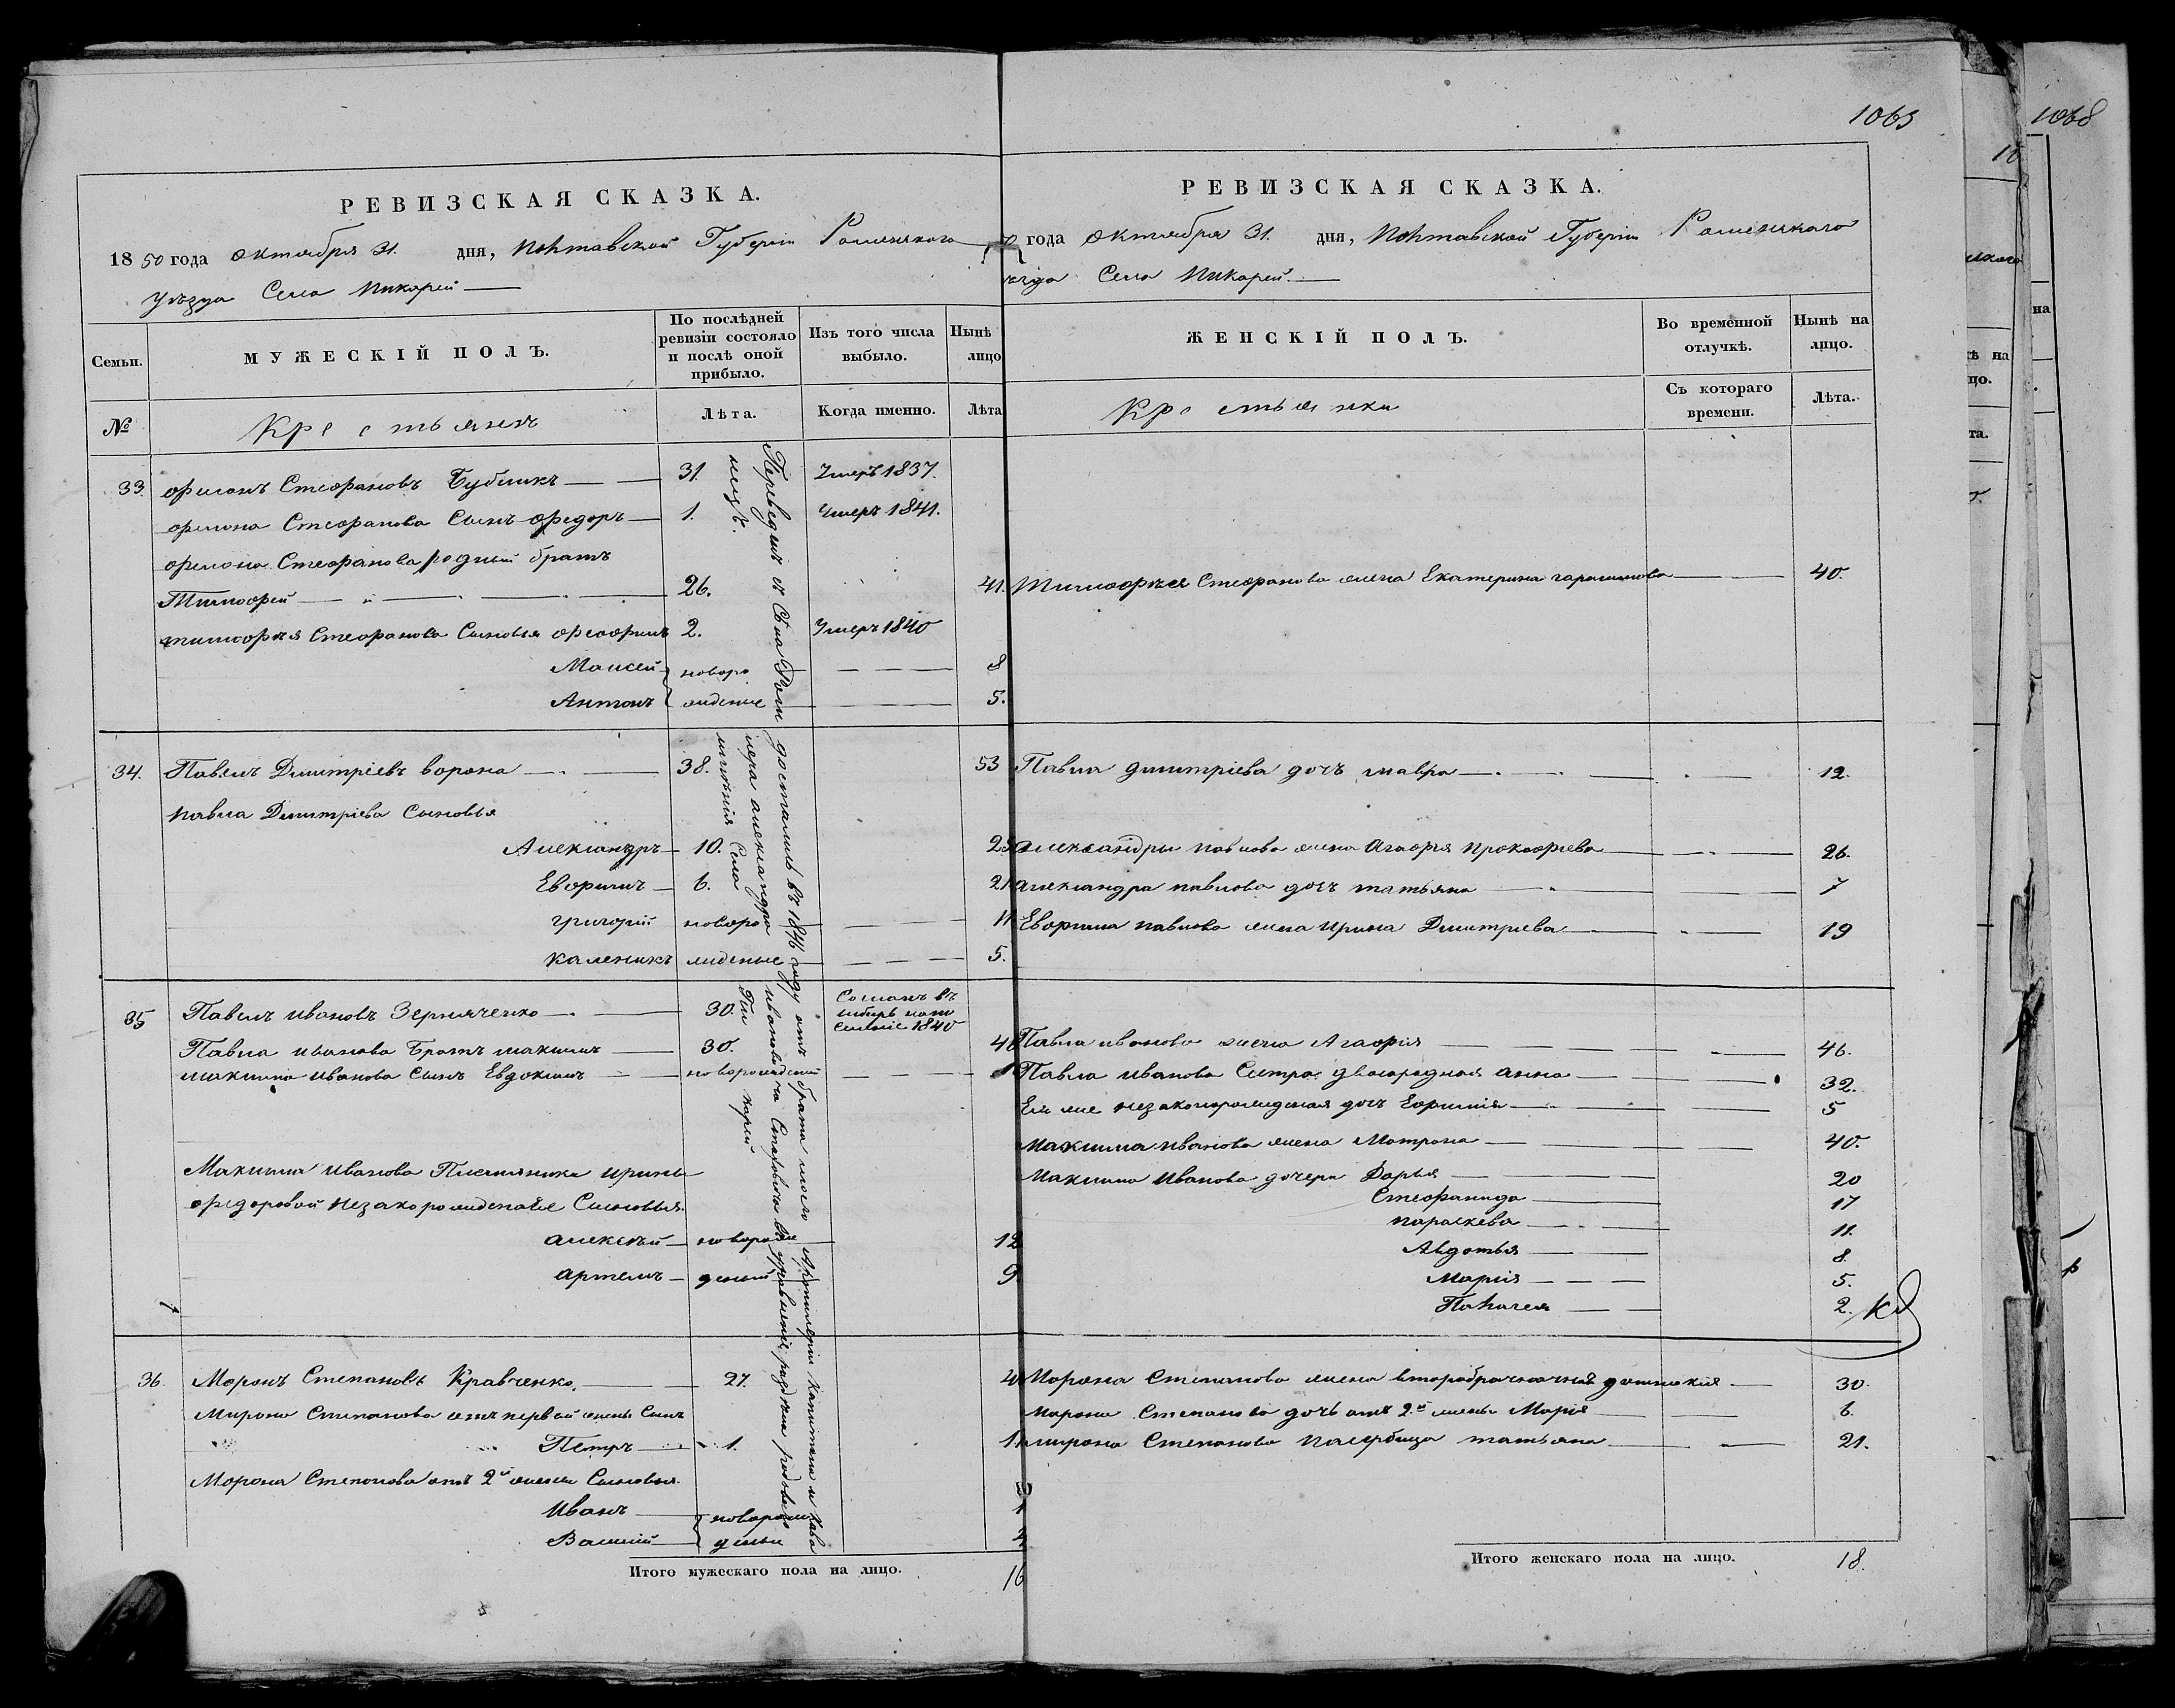 1065
1068
РЕВИЗСКАЯ СКАЗКА.
1850 года октября 31. дня, Полтавской Губерніи Роменскаго
уѣзда Села Пикарей
Семьи.
МУЖЕСКІЙ ПОЛЪ.
По послѣдней ревизіи состояло и послѣ оной прибыло.
Изъ того числа выбыло.
Нынѣ лицо
№
Крестьянъ
Лѣта.
Когда именно.
Лѣта
33. Филонъ Стефановъ Бубликъ 31. Умеръ 1837.
Филона Стефанова Сынъ Федоръ 1. Умеръ 1841.
Филона Стефанова родный братъ
Тимофей 26. 41.
Тимофея Стефанова Сыновья Феофилъ 2. Умеръ 1840
Моисей новоро 8
Антонъ жденые 5.
34. Павелъ Дмитріевъ ворона 38. 53
Павла Дмитріева Сыновья
Александръ 10. 25
Евфимъ 6. 21
григорій новоро 11
каленикъ жденые 5.
35 Павелъ ивановъ Зерняченко 30. Сосланъ въ сибирь на поселеніе 1840
Павла иванова Братъ максимъ 30. 46
максима иванова Сынъ Евдокимъ новорожденый
Максима иванова Племянника ирины
федоровой незакорожденые Сыновья
алексѣй новорож 12
артемъ деный 9
36. Миронъ Степановъ Кравченко. 27.
Мирона Степанова отъ первой жены Сынъ
Петръ 1.
Мирона Степанова отъ 2й жены Сыновья
Иванъ новорож
Василій дены
Итого мужескаго пола на лицо. 16
Переведенъ в Села достались въ 1846 году отъ брата моего Артилерии капитана и кава
лера александра ивановича
имѣнія Села Пикарей
РЕВИЗСКАЯ СКАЗКА.
года октября 31. дня, Полтавской Губерніи Роменскаго
уѣзда Села Пикарей.
ЖЕНСКІЙ ПОЛЪ.
Во временной отлучкѣ.
Нынѣ на лицо.
Крестьянки
Съ котораго времени.
Лѣта.
Тимофея Стефанова жена Екатерина гарасимова 40.
Павла дмитріева дочь мавра 12.
александры павлова жена Агафья прокофьева 26.
александра павлова дочь татьяна 7
Евфима павлова жена ирина Дмитріева 19
Павла иванова жена Агафія 46.
Павла иванова Сестра двоюродная анна 32.
Ея же незакорожденая дочь Ефимія 5
максима иванова жена Матрона 40.
максима иванова дочери Дарья 20
Стефанида 17
параскева 11.
Авдотья 8.
Марія 5.
Палагея 2.
Мирона Степанова жена второбрачная 30.
Мирона Степанова дочь отъ 2й жены Марія 6.
мирона Степанова пасербица татьяна 21.
Итого женскаго пола на лицо. 18.